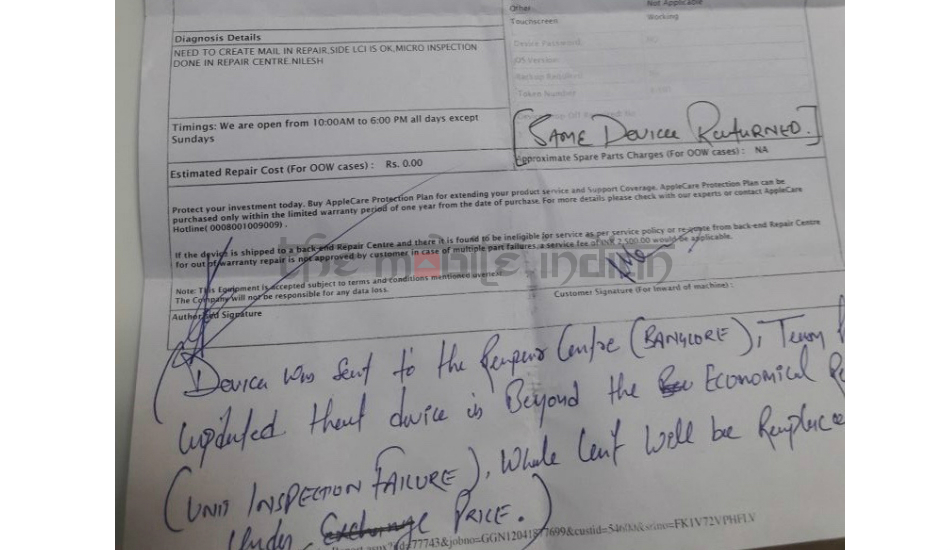 Other
Not Applicable
Touchscreen
Working
Device Password:
OS Version:
Backup Required:
Token Number
Diagnosis Details
NEED TO CREATE MAIL IN REPAIR,SIDE LCI IS OK,MICRO INSPECTION
DONE IN REPAIR CENTRE.NILESH
Timings: We are open from 10:00AM to 6:00 PM all days except
Sundays
[SAME DEVICE RETURNED.]
Estimated Repair Cost (For OOW cases) : Rs. 0.00
Approximate Spare Parts Charges (For OOW cases) : NA
Protect your investment today. Buy AppleCare Protection Plan for extending your product service and Support Coverage. AppleCare Protection Plan can be
purchased only within the limited warranty period of one year from the date of purchase. For more details please check with our experts or contact AppleCare
Hotline( 0008001009009) .
If the device is shipped to a back-end Repair Centre and there it is found to be ineligible for service as per service policy or re-quote from back-end Repair Centre
for out of warranty repair is not approved by customer in case of multiple part failures, a service fee of INR 2,500.00 would be applicable.
the mobile indian
Note: This Equipment is accepted subject to terms and conditions mentioned overleaf.
The Company will not be responsible for any data loss.
Customer Signature (For Inward of machine) :
Authorised Signature
(Device was sent to the Repair Centre (BANGLORE), Team
updated that device is Beyond the Economical
(UNIT INSPECTION FAILURE), Whole Unit Will be Replace
Under Exchange PRICE.)
77743&jobno=GGN12041877699&custid=54600&srlno=FK1V72VPHFLV